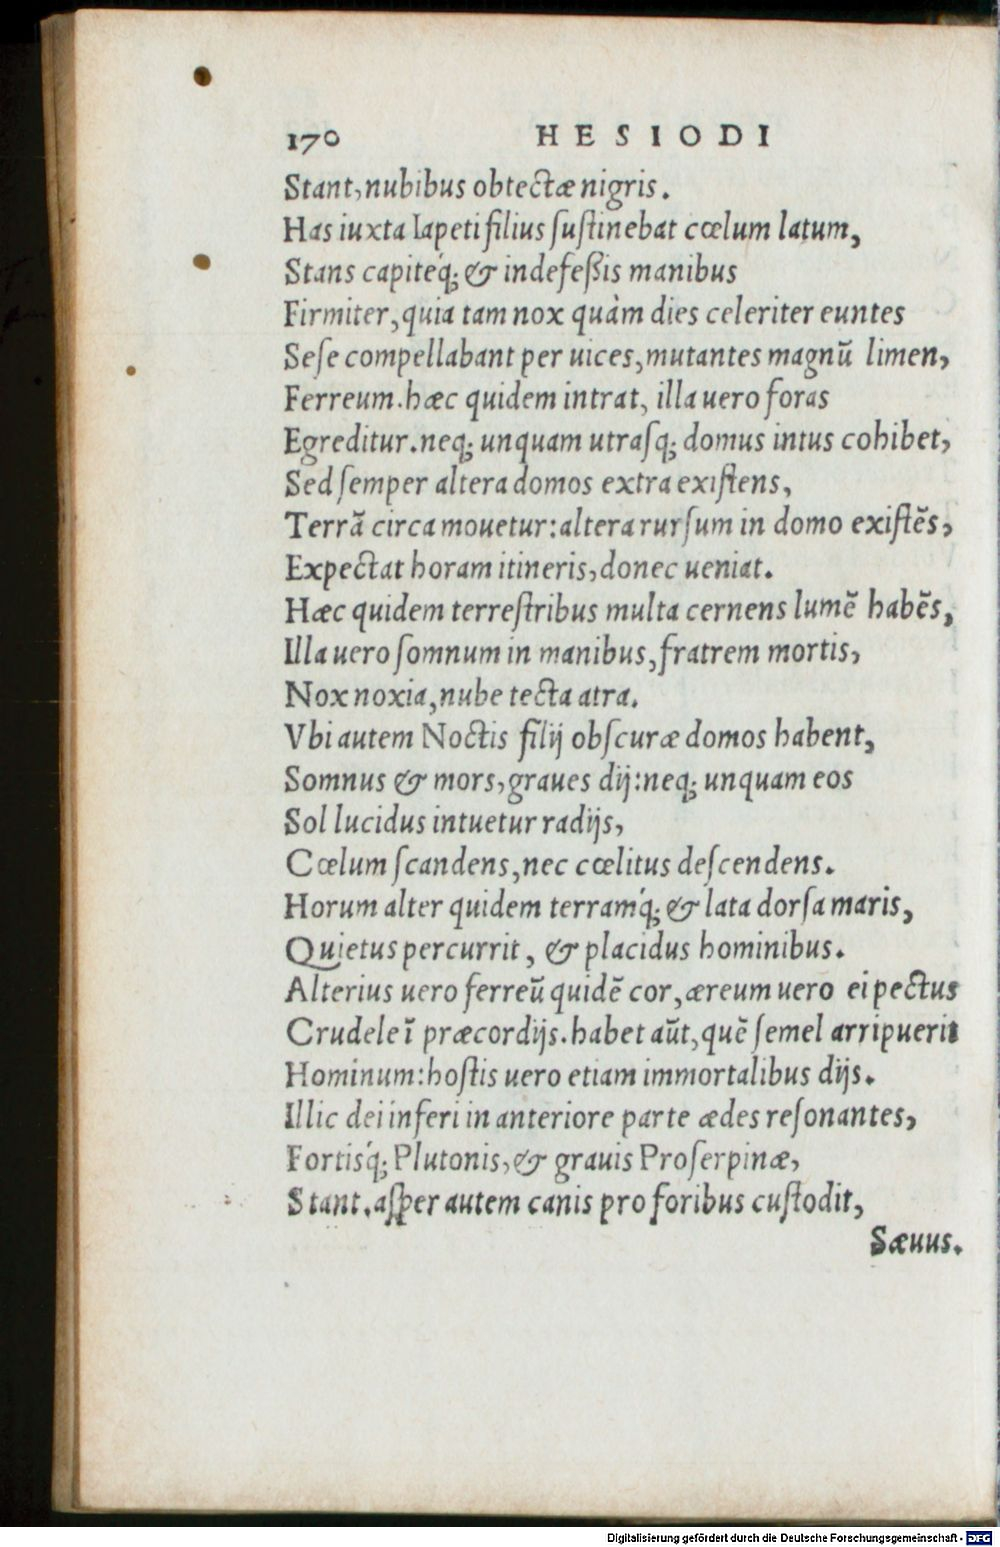 170 HESIODI
Stant, nubibus obtectæ nigris.
Has iuxta Iapeti filius ſuſtinebat cœlum latum,
Stans capiteq́ꝫ & indefeßis manibus
Firmiter, quia tam nox quàm dies celeriter euntes
Seſe compellabant per uices, mutantes magnū limen,
Ferreum. hæc quidem intrat, illa uero foras
Egreditur. neqꝫ unquam utraſqꝫ domus intus cohibet,
Sed ſemper altera domos extra exiſtens,
Terrā circa mouetur: altera rurſum in domo exiſtēs,
Expectat horam itineris, donec ueniat.
Hæc quidem terreſtribus multa cernens lumē habēs,
Illa uero ſomnum in manibus, fratrem mortis,
Nox noxia, nube tecta atra.
Vbi autem Noctis filij obſcuræ domos habent,
Somnus & mors, graues dij: neqꝫ unquam eos
Sol lucidus intuetur radijs,
Cœlum ſcandens, nec cœlitus deſcendens.
Horum alter quidem terramq́ꝫ & lata dorſa maris,
Quietus percurrit, & placidus hominibus.
Alterius uero ferreū quidē cor, æreum uero ei pectus
Crudele ī præcordijs. habet aūt, quē ſemel arripuerit
Hominum: hoſtis uero etiam immortalibus dijs.
Illic dei inferi in anteriore parte ædes reſonantes,
Fortisq́ꝫ Plutonis, & grauis Proſerpinæ,
Stant. aſper autem canis pro foribus cuſtodit,
Sæuus.
Digitalisierung gefördert durch die Deutsche Forschungsgemeinschaft - DFG